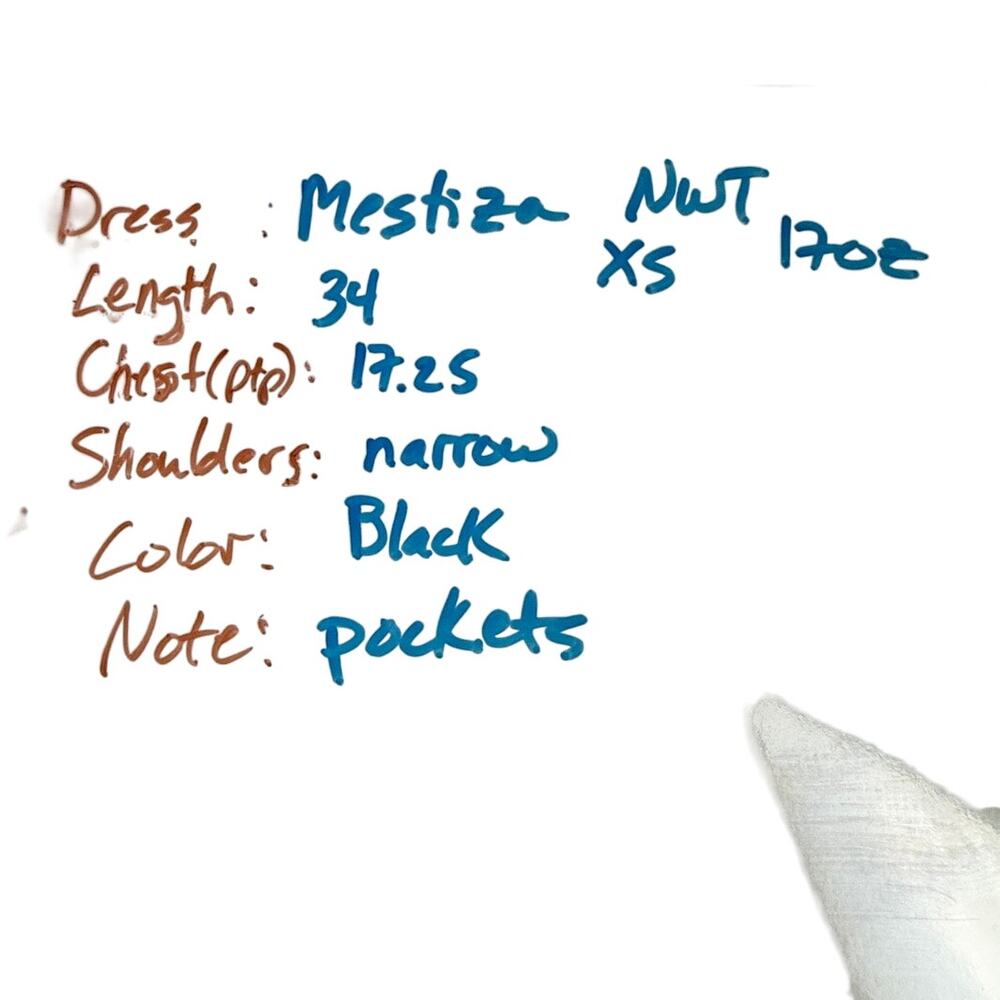 Dress : Mestiza NWT
XS 17oz
Length: 34
Chest(ptp): 17.25
Shoulders: narrow
Color: Black
Note: pockets